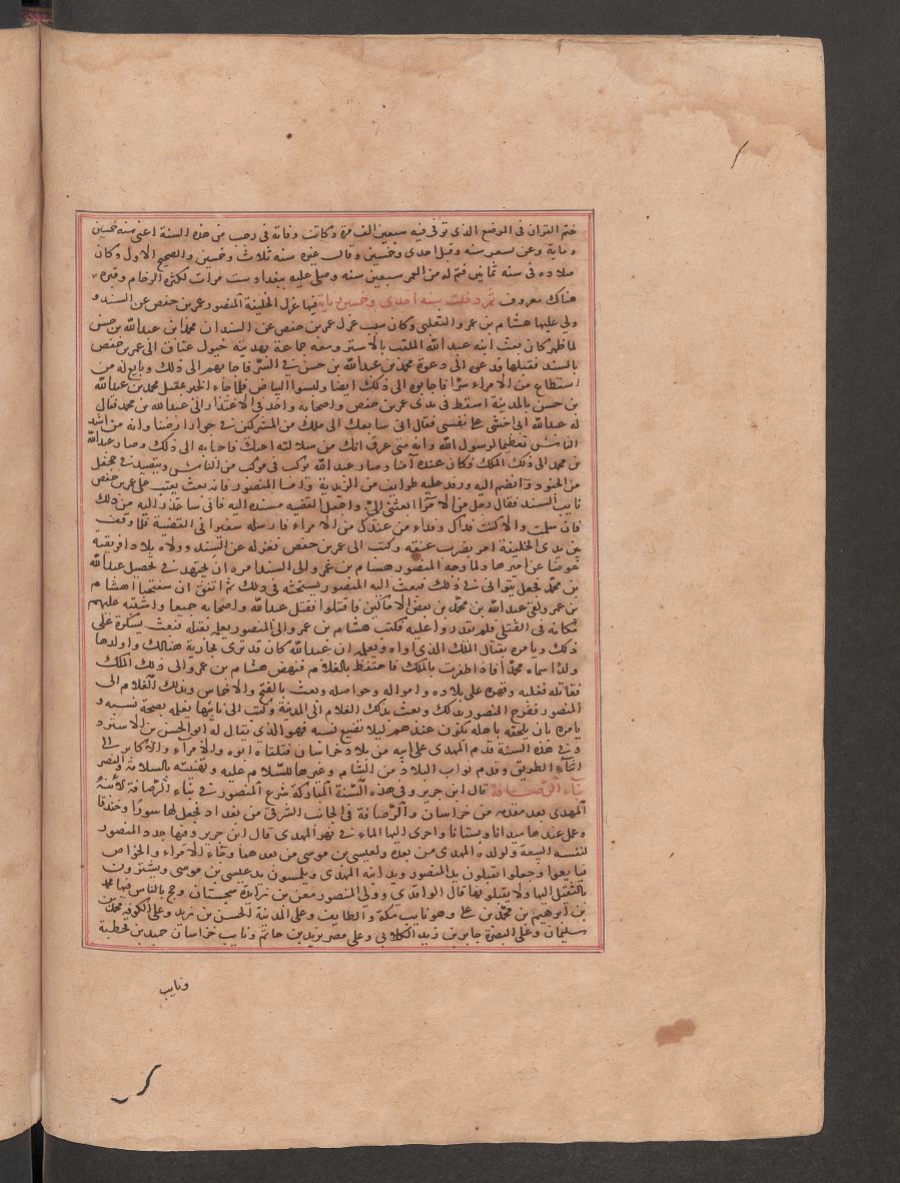 ختم القران في الموضع الذي توفي فيه سبعين الف مرة وكانت وفاته في رجب من هذه السنة اعني سنه خمسين
وماية وعن تسعين سنه وقيل احدى وخمسين وقال غيره سنه ثلاث وخمسين والصحيح الاول وكان
ميلاده في سنه ثمانين فتم له من العمر سبعين سنه وصلي عليه ببغداد ست مرات لكثرة الزحام وقبره
هناك معروف ثم دخلت سنه احدى وخمسين ماية فيها عزل الخليفة المنصور عمر بن حفص عن السند و
ولي عليها هشام بن عمرو التغلبي وكان سبب عزل عمر بن حفص عن السند ان محمد بن عبد الله بن حسن
لما ظهر كان بعث ابنه عبد الله الملقب بالاستر ومعه جماعة بهدية خيول عتاق الى عمر بن حفص
بالسند فقبلها فدعوه الى دعوة محمد بن عبد الله بن حسن في السر فاجابهم الى ذلك وبايع له من
استطاع من الامراء سرا فاجابوه الى ذلك ايضا ولبسوا البياض فلما جاء الخبر بمقتل محمد بن عبد الله
بن حسن بالمدينة اسقط في يدي عمر بن حفص واصحابه واخذ في الاعتذار الى عبد الله بن محمد فقال
له عبد الله اني اخشى على نفسي فقال اني سابعثك الى ملك من المشركين في جوار ارضنا وانه من اشد
الناس تعظيما لرسول الله وانه متى عرف انك من سلالته احبك فاجابه الى ذلك وصار عبد الله
بن محمد الى ذلك الملك فكان عنده آمنا وصار عبد الله يركب في موكب من الناس ويتصيد في جحفل
من الجنود وانضم اليه ووفد عليه طوايف من الزيدية واما المنصور فانه بعث يعتب على عمر بن حفص
نايب السند فقال رجل من الامراء ابعثني اليه واجعل القضيه مسنده اليه فاني ساعتذر اليه من ذلك
فان سلمت والا كنت فداك وفداء من عندك من الامراء فارسله سفيرا في القضية فلما وقف
بين يدي الخليفة امر بضرب عنقه وكتب الى عمر بن حفص فعزله عن السند وولاه بلاد افريقية
عوضا عن اميرها ولما وجه المنصور هشام بن عمرو الى السند امره ان يجتهد في تحصيل عبد الله
بن محمد فجعل يتوانى في ذلك فبعث اليه المنصور يستحثه في ذلك ثم اتفق ان سفنجا اخا هشام
بن عمرو لقي عبد الله بن محمد في بعض الاماكن فاقتتلوا فقتل عبد الله واصحابه جميعا واشتبه عليهم
مكانه في القتلى فلم يقدروا عليه فكتب هشام بن عمرو الى المنصور يعلمه بقتله فبعث يشكره على
ذلك ويامره بقتال الملك الذي اواه ويعلمه ان عبد الله كان قد تسرى بجارية هنالك واولدها
ولدا اسماه محمدا فاذا ظفرت بالملك فاحتفظ بالغلام فنهض هشام بن عمرو الى ذلك الملك
فقاتله فغلبه وقهره على بلاده وامواله وحواصله وبعث بالفتح والاخماس وبذلك الغلام الى
المنصور ففرح المنصور بذلك وبعث بذلك الغلام الى المدينة وكتب الى نايبها يعلمه بصحة نسبه و
يامره بان يلحقه باهله يكون عندهم ليلا يضيع نسبه فهو الذي يقال له ابو الحسن بن الاستر
وفي هذه السنة قدم المهدي على ابيه من بلاد خراسان فتلقاه ابوه والامراء والاكابر الى
اثناء الطريق وقدم نواب البلاد من الشام وغيرها للسلام عليه وتهنئته بالسلامة والنصر
بناء الرصافة قال ابن جرير وفي هذه السنة المباركة شرع المنصور في بناء الرصافة لابنه
المهدي بعد مقدمه من خراسان والرصافة في الجانب الشرقي من بغداد وجعل لها سورا وخندقا
وعمل عندها ميدانا وبستانا واجرى اليها الماء من نهر المهدي قال ابن جرير وفيها جدد المنصور
لنفسه البيعة ولولده المهدي من بعده ولعيسى بن موسى من بعدهما وجاء الامراء والخواص
فبايعوا وجعلوا يقبلون يد المنصور ويد ابنه المهدي ويلمسون يد عيسى بن موسى ويشيرون
بالتقبيل اليها ولا يقبلونها قال الواقدي وولى المنصور معن بن زايدة سجستان وحج بالناس فيها محمد
بن ابرهيم بن محمد بن علي وهو نايب مكة والطايف وعلى المدينة الحسن بن زيد وعلى الكوفه محمد بن
سليمان وعلى البصرة جابر بن زيد الكلابي وعلى مصر يزيد بن حاتم ونايب خراسان حميد بن قحطبة
ونايب